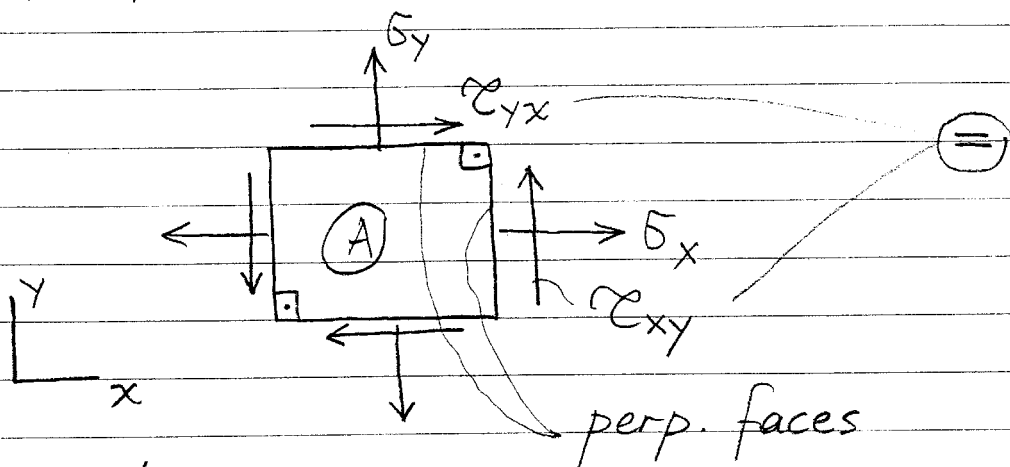 σy
τyx
=
A
σx
τxy
y
x
perp. faces